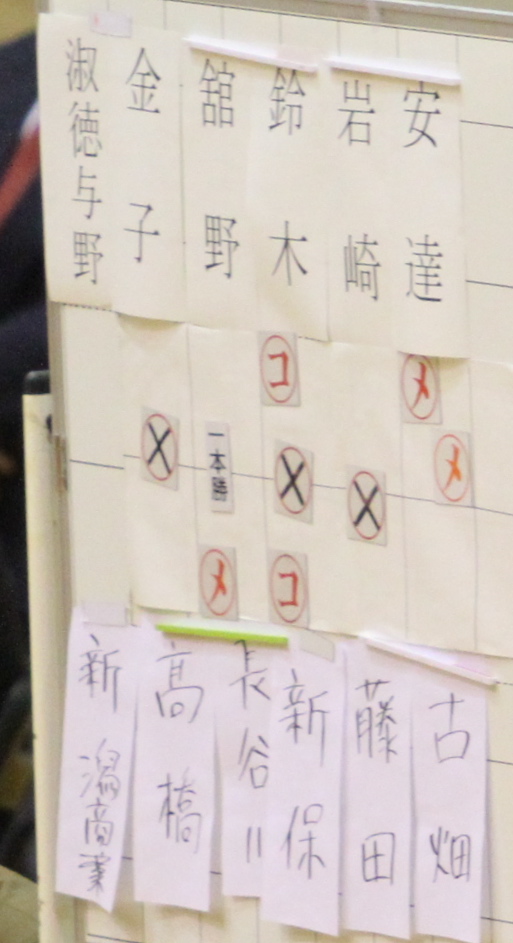 安達
岩崎
鈴木
舘野
金子
淑徳与野
メ
メ
コ
コ
一本勝
メ
古畑
藤田
新保
長谷川
高橋
新潟商業